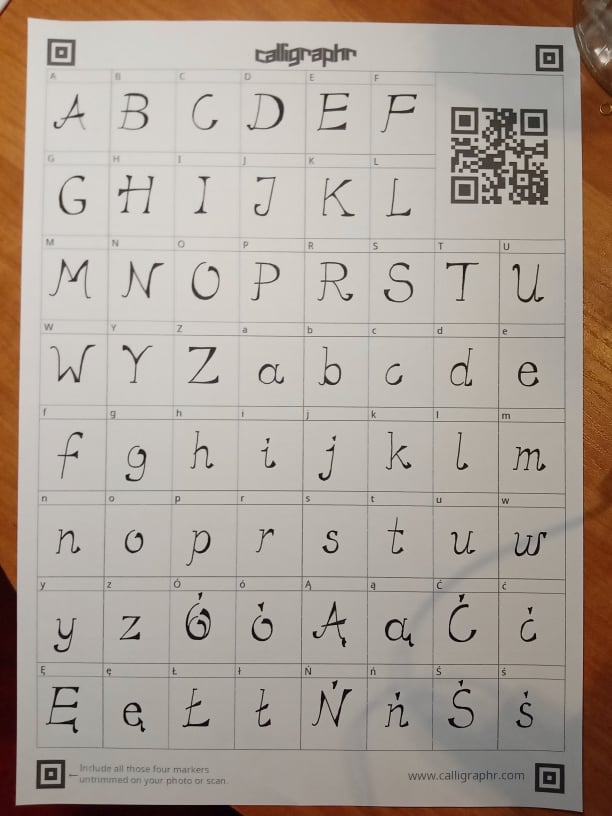 calligraphr
A B C D E F
A B C D E F
G H I J K L
G H I J K L
M N O P R S T U
M N O P R S T U
W Y Z a b c d e
W Y Z a b c d e
f g h i j k l m
f g h i j k l m
n o p r s t u w
n o p r s t u w
y z Ó ó Ą ą Ć ć
y z Ó ó Ą ą Ć ć
Ę ę Ł ł Ń ń Ś ś
Ę ę Ł ł Ń ń Ś ś
←Include all those four markers
untrimmed on your photo or scan.
www.calligraphr.com